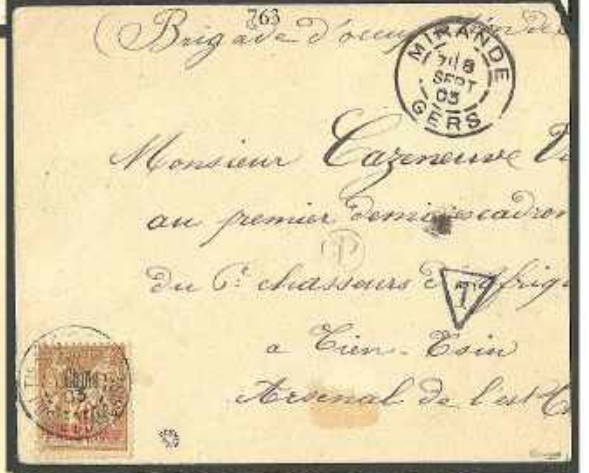 763
(Brigade d'occup
MIRANDE
8
SEPT
03
GERS
Monsieur Cazeneuve
au premier demi escadron
du 6e chasseurs d'Afriq
T
a Tien-Tsin
Chine
03
Arsenal de l'est